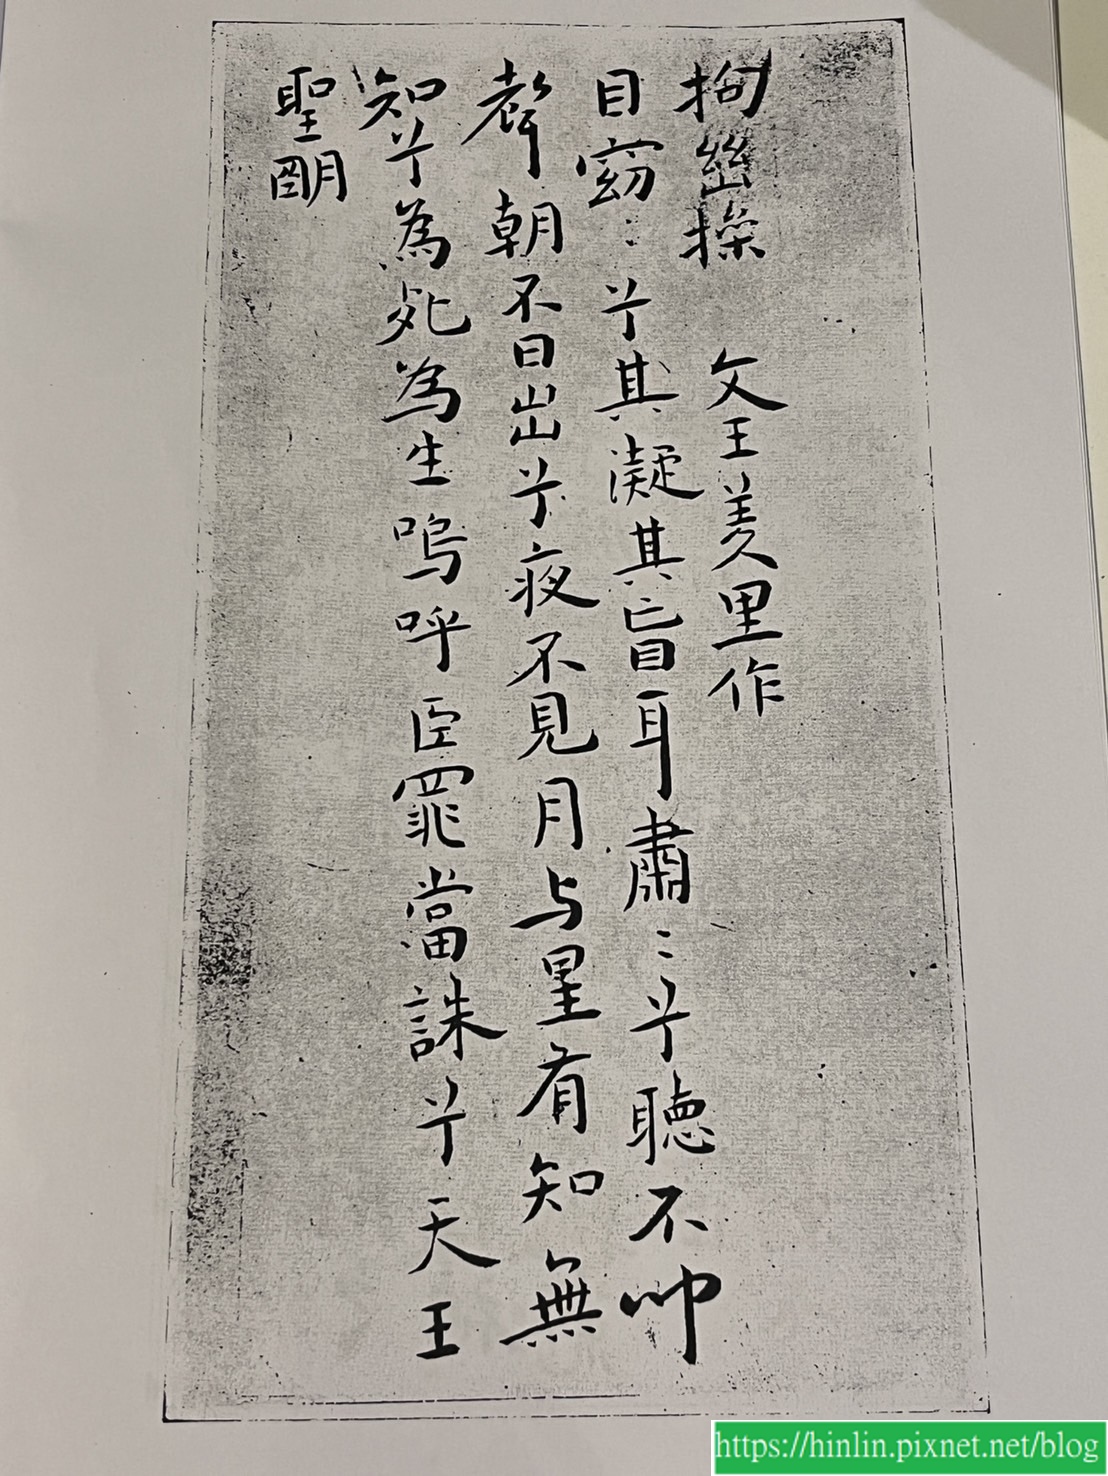 拘幽操 文王羑里作
目窈〻兮其凝其盲耳肅〻兮聽不聞
聲朝不日出兮夜不見月与星有知無
知兮為死為生嗚呼臣罪當誅兮天王
聖朙
https://hinlin.pixnet.net/blog